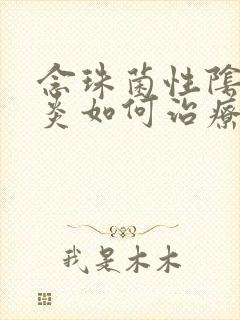 念珠菌性陰
炎如何治療
我是木木